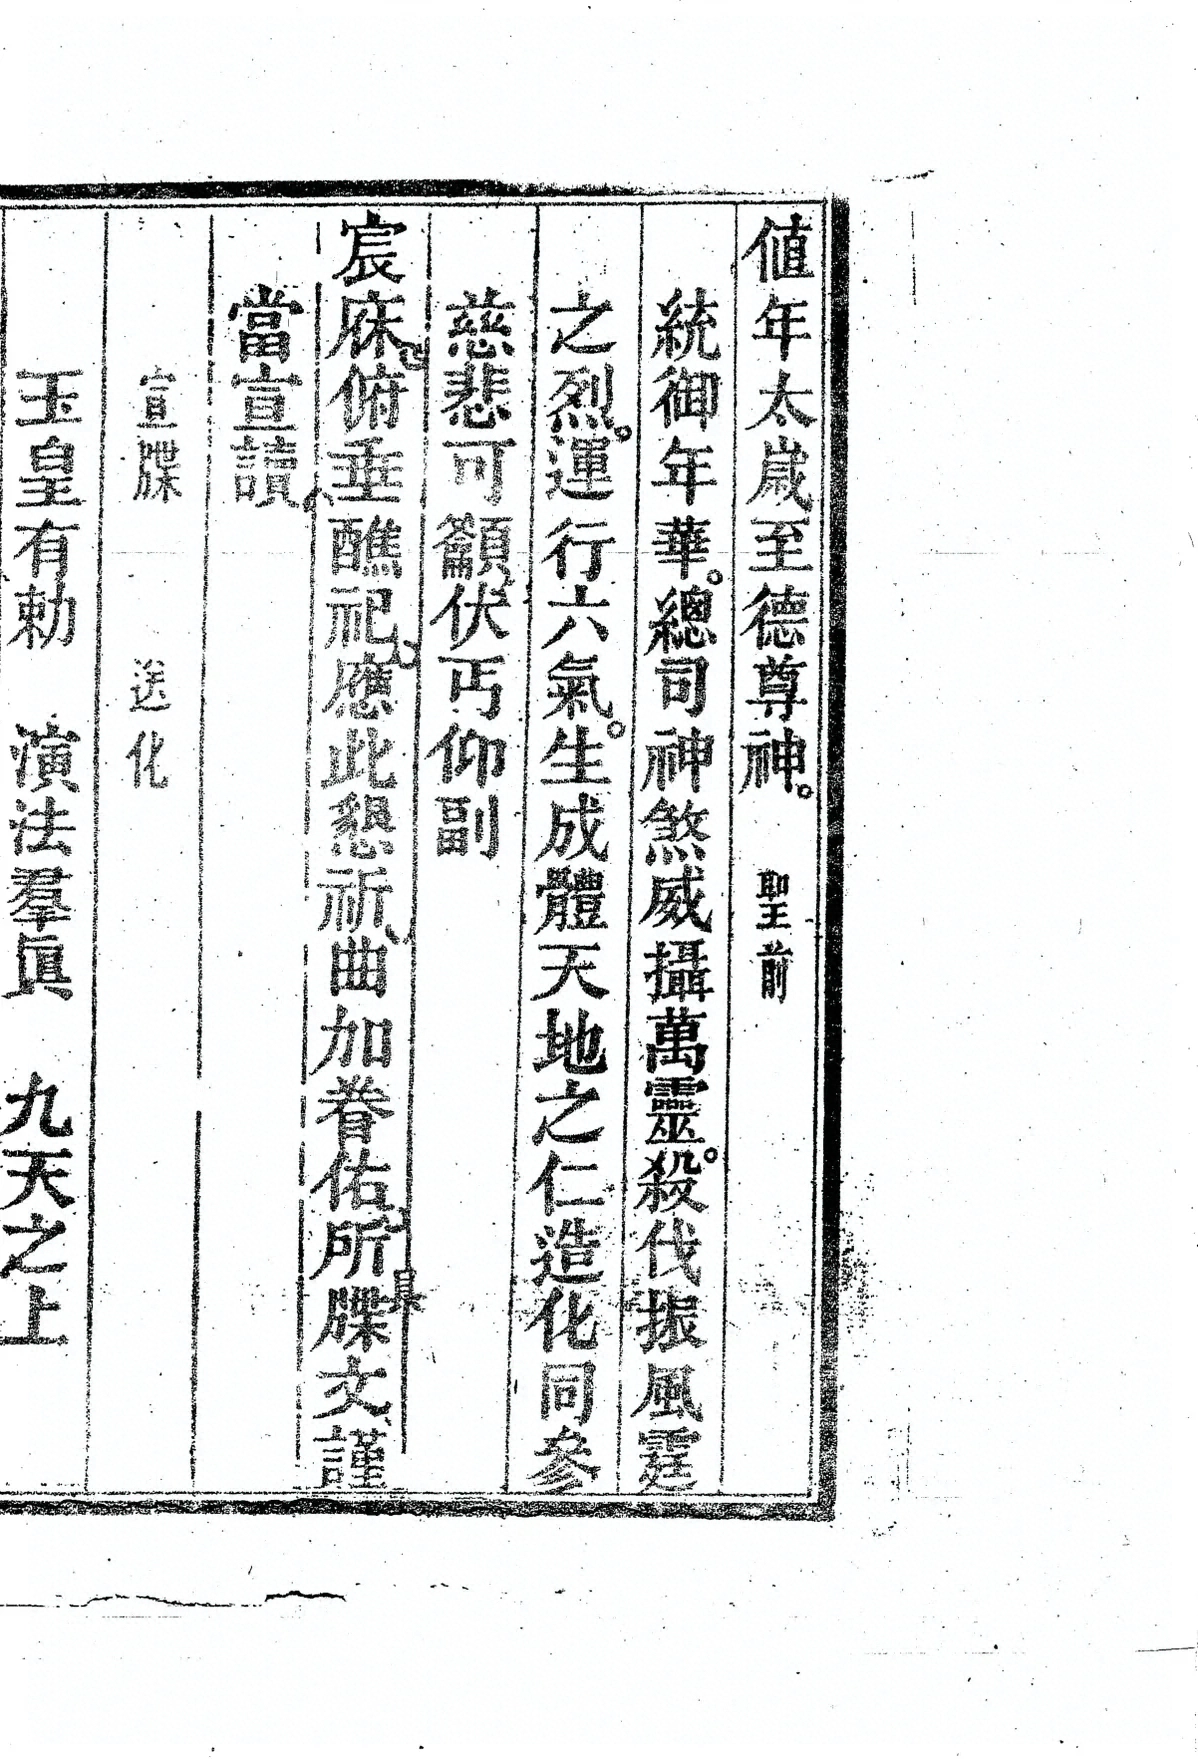 值年太歲至德尊神。 聖前
統御年華。總司神煞威攝萬靈。殺伐振風霆
之烈。運行六氣。生成體天地之仁造化同參
慈悲可籲伏丐仰副
宸庥俯垂醮祀應此懇祈曲加眷佑所牒文謹
當宣讀
宣牒 送化
玉皇有勅 演法羣眞 九天之上